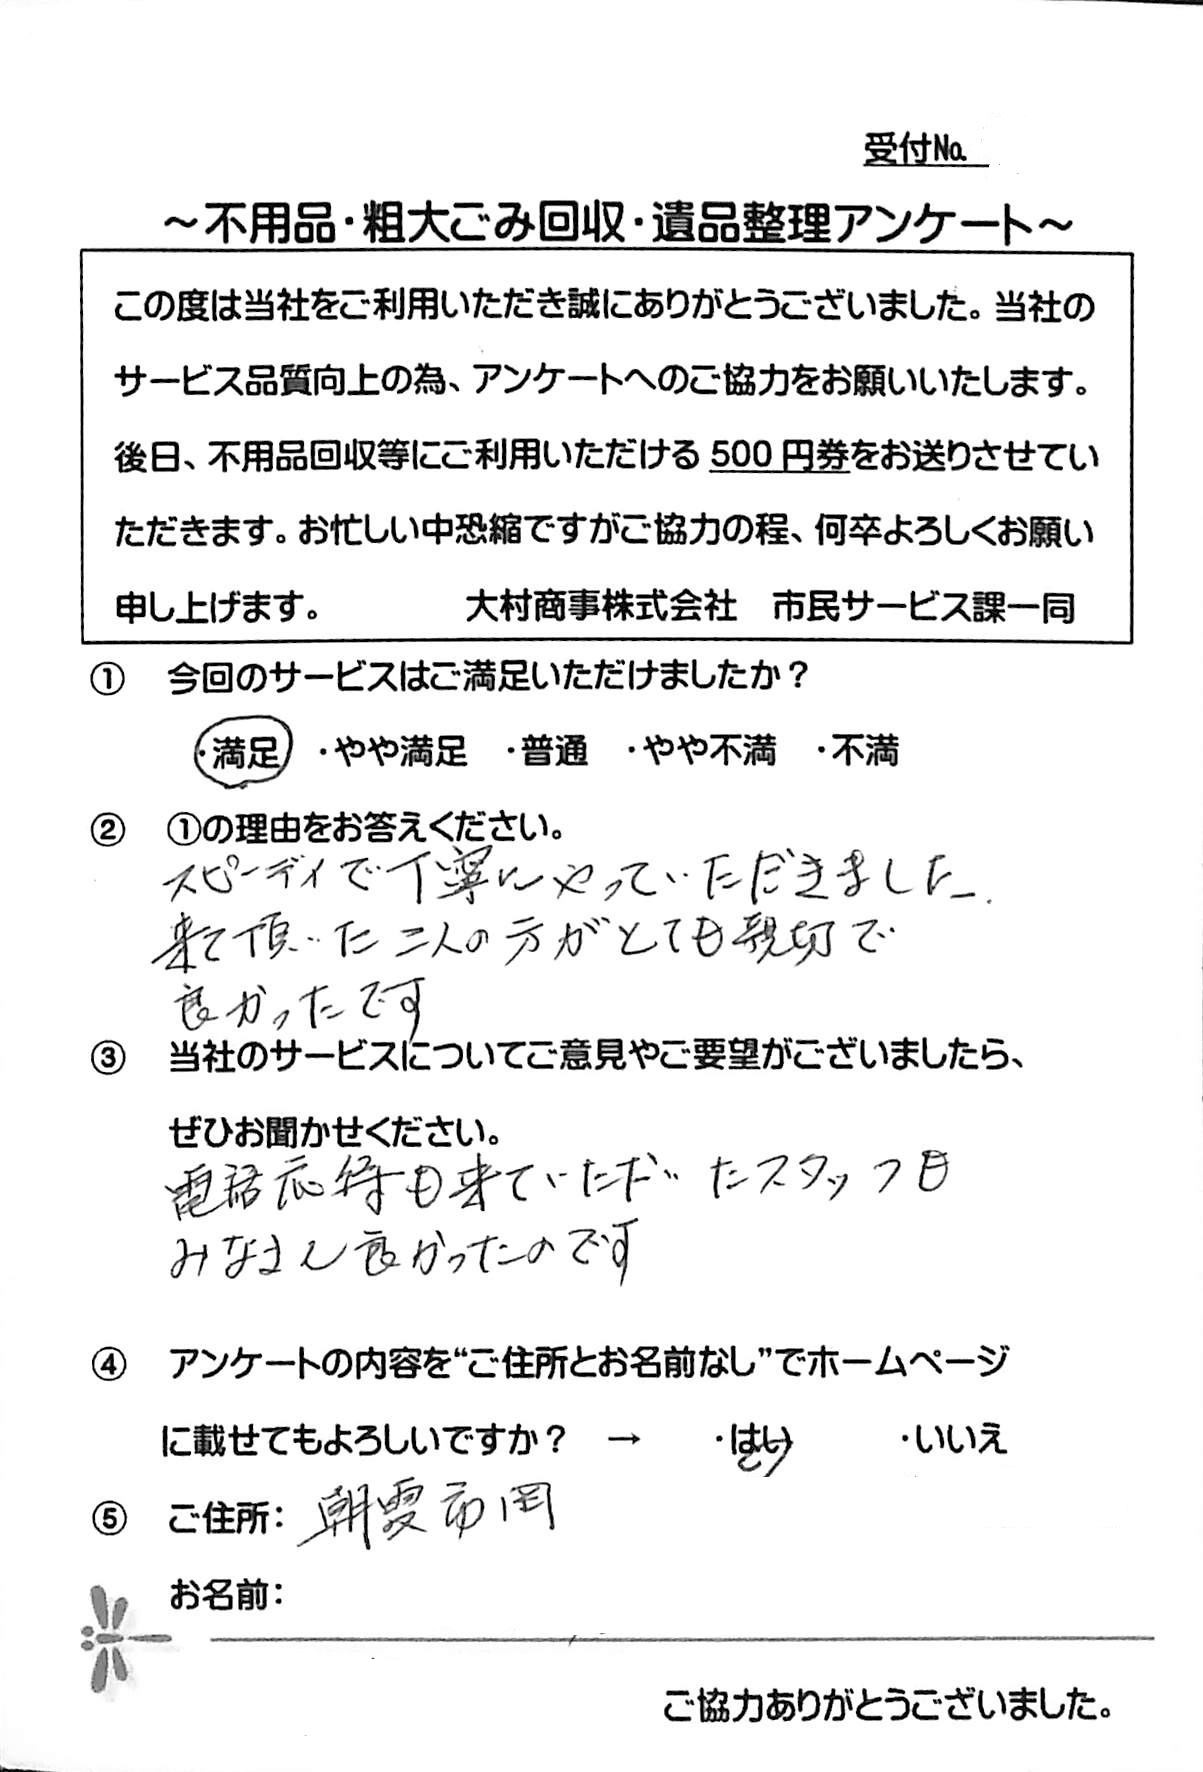 受付No.
～不用品・粗大ごみ回収・遺品整理アンケート～
この度は当社をご利用いただき誠にありがとうございました。当社の
サービス品質向上の為、アンケートへのご協力をお願いいたします。
後日、不用品回収等にご利用いただける 500 円券をお送りさせてい
ただきます。お忙しい中恐縮ですがご協力の程、何卒よろしくお願い
申し上げます。 大村商事株式会社 市民サービス課一同
① 今回のサービスはご満足いただけましたか？
・満足 ・やや満足 ・普通 ・やや不満 ・不満
② ①の理由をお答えください。
スピーディで丁寧にやっていただきました.
来て頂いた二人の方がとても親切で
良かったです
③ 当社のサービスについてご意見やご要望がございましたら、
ぜひお聞かせください。
電話応待も来ていただいたスタッフも
みなさん良かったのです
④ アンケートの内容を“ご住所とお名前なし”でホームページ
に載せてもよろしいですか？ → ・はい ・いいえ
⑤ ご住所： 朝霞市岡
お名前：
ご協力ありがとうございました。